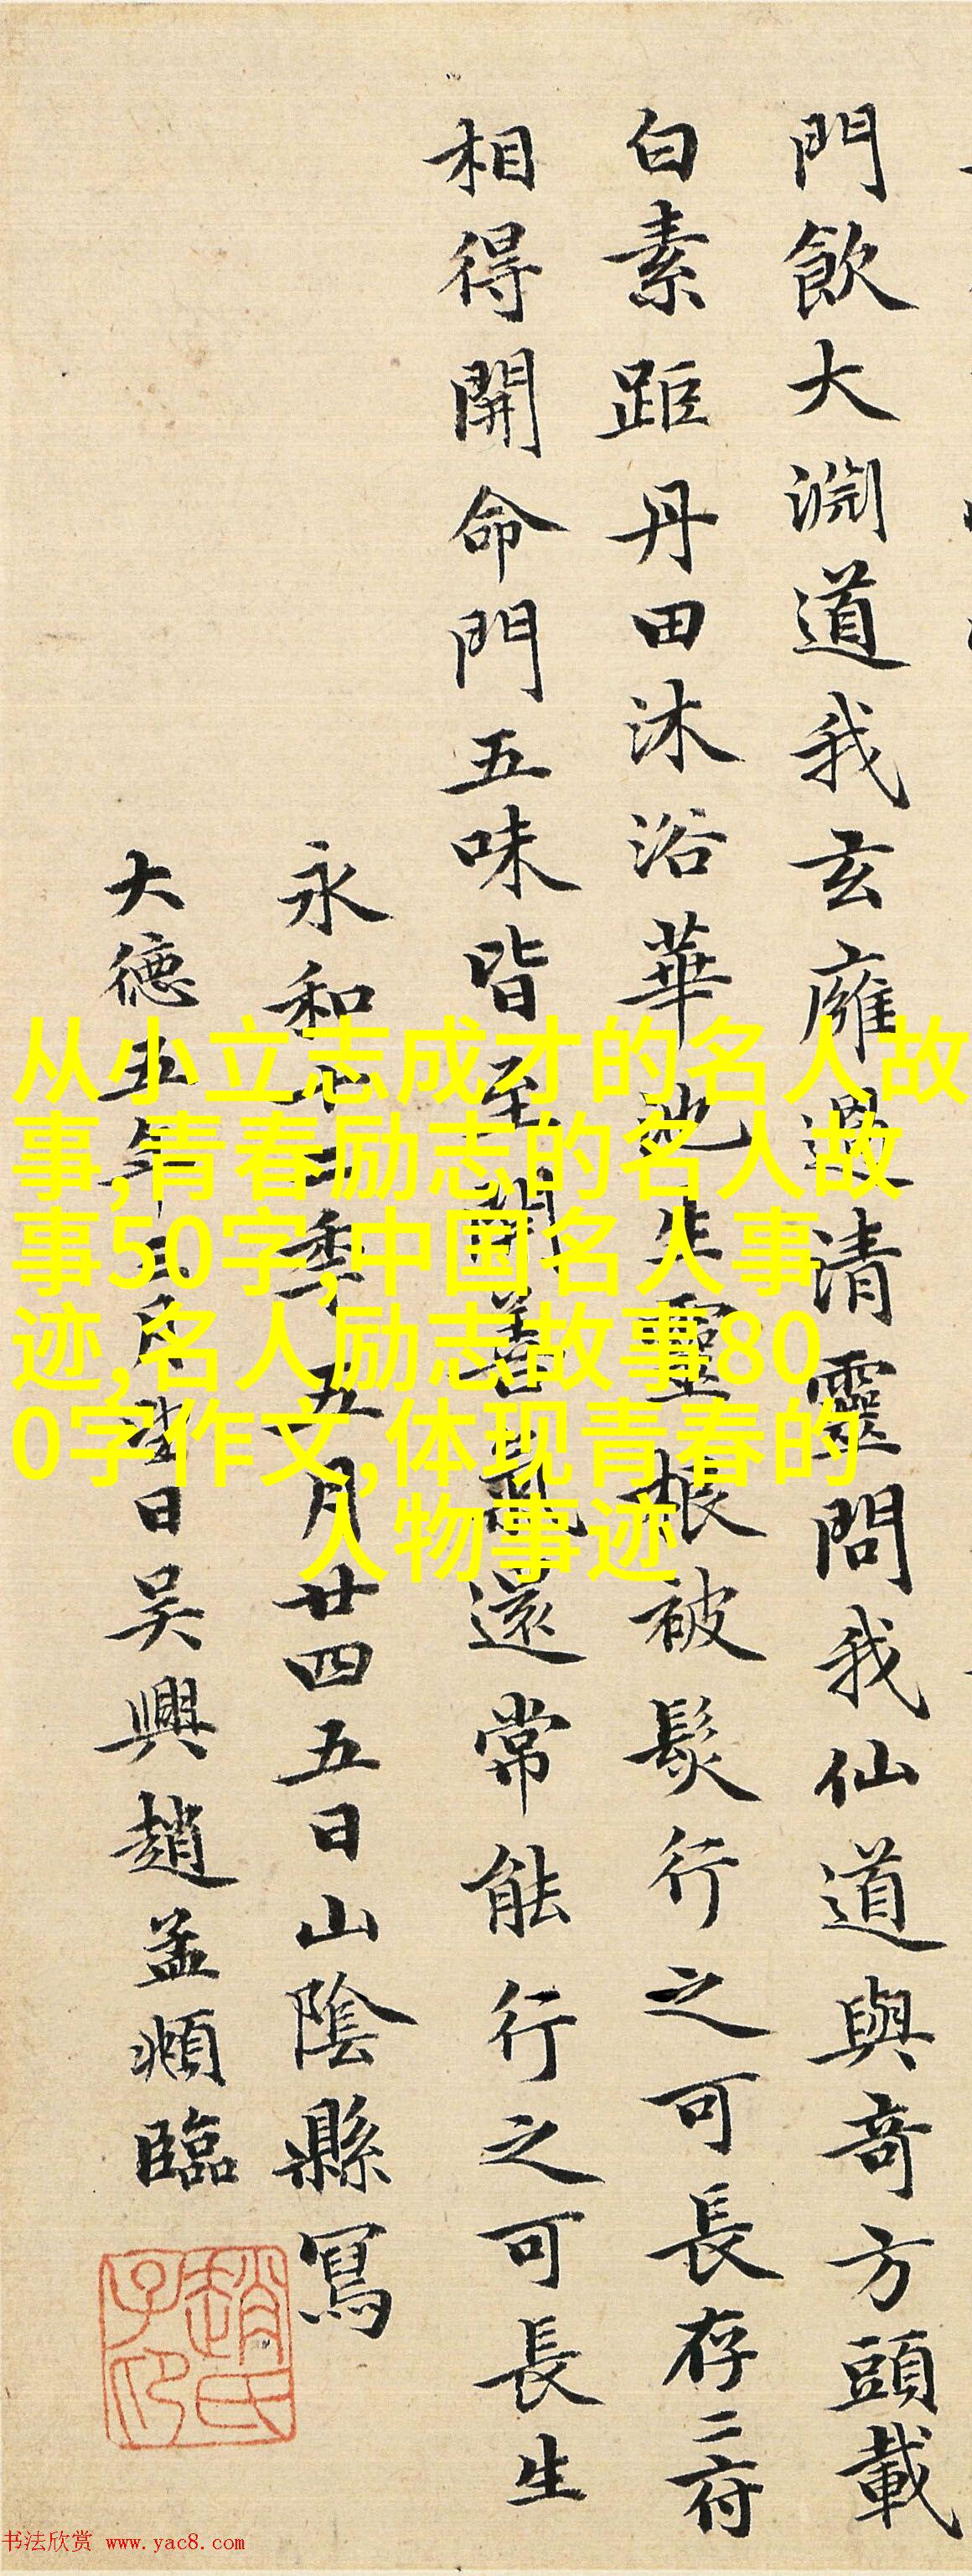 門飲大渕道我玄廱過清靈問我仙道與奇方頭載
白素距丹田沐浴華池生靈根被髮行之可長存二府
相得開命門五味皆至開善氣還常能行之可長生
永和十二年五月廿四五日山陰縣寫
大德五年月望日吳興趙孟頫臨
趙氏子印
从小立志成才的名人故
事,青春励志的名人故
事50字,中国名人事
迹,名人励志故事80
0字作文,体现青春的
人物事迹
书法欣赏 www.yac8.com